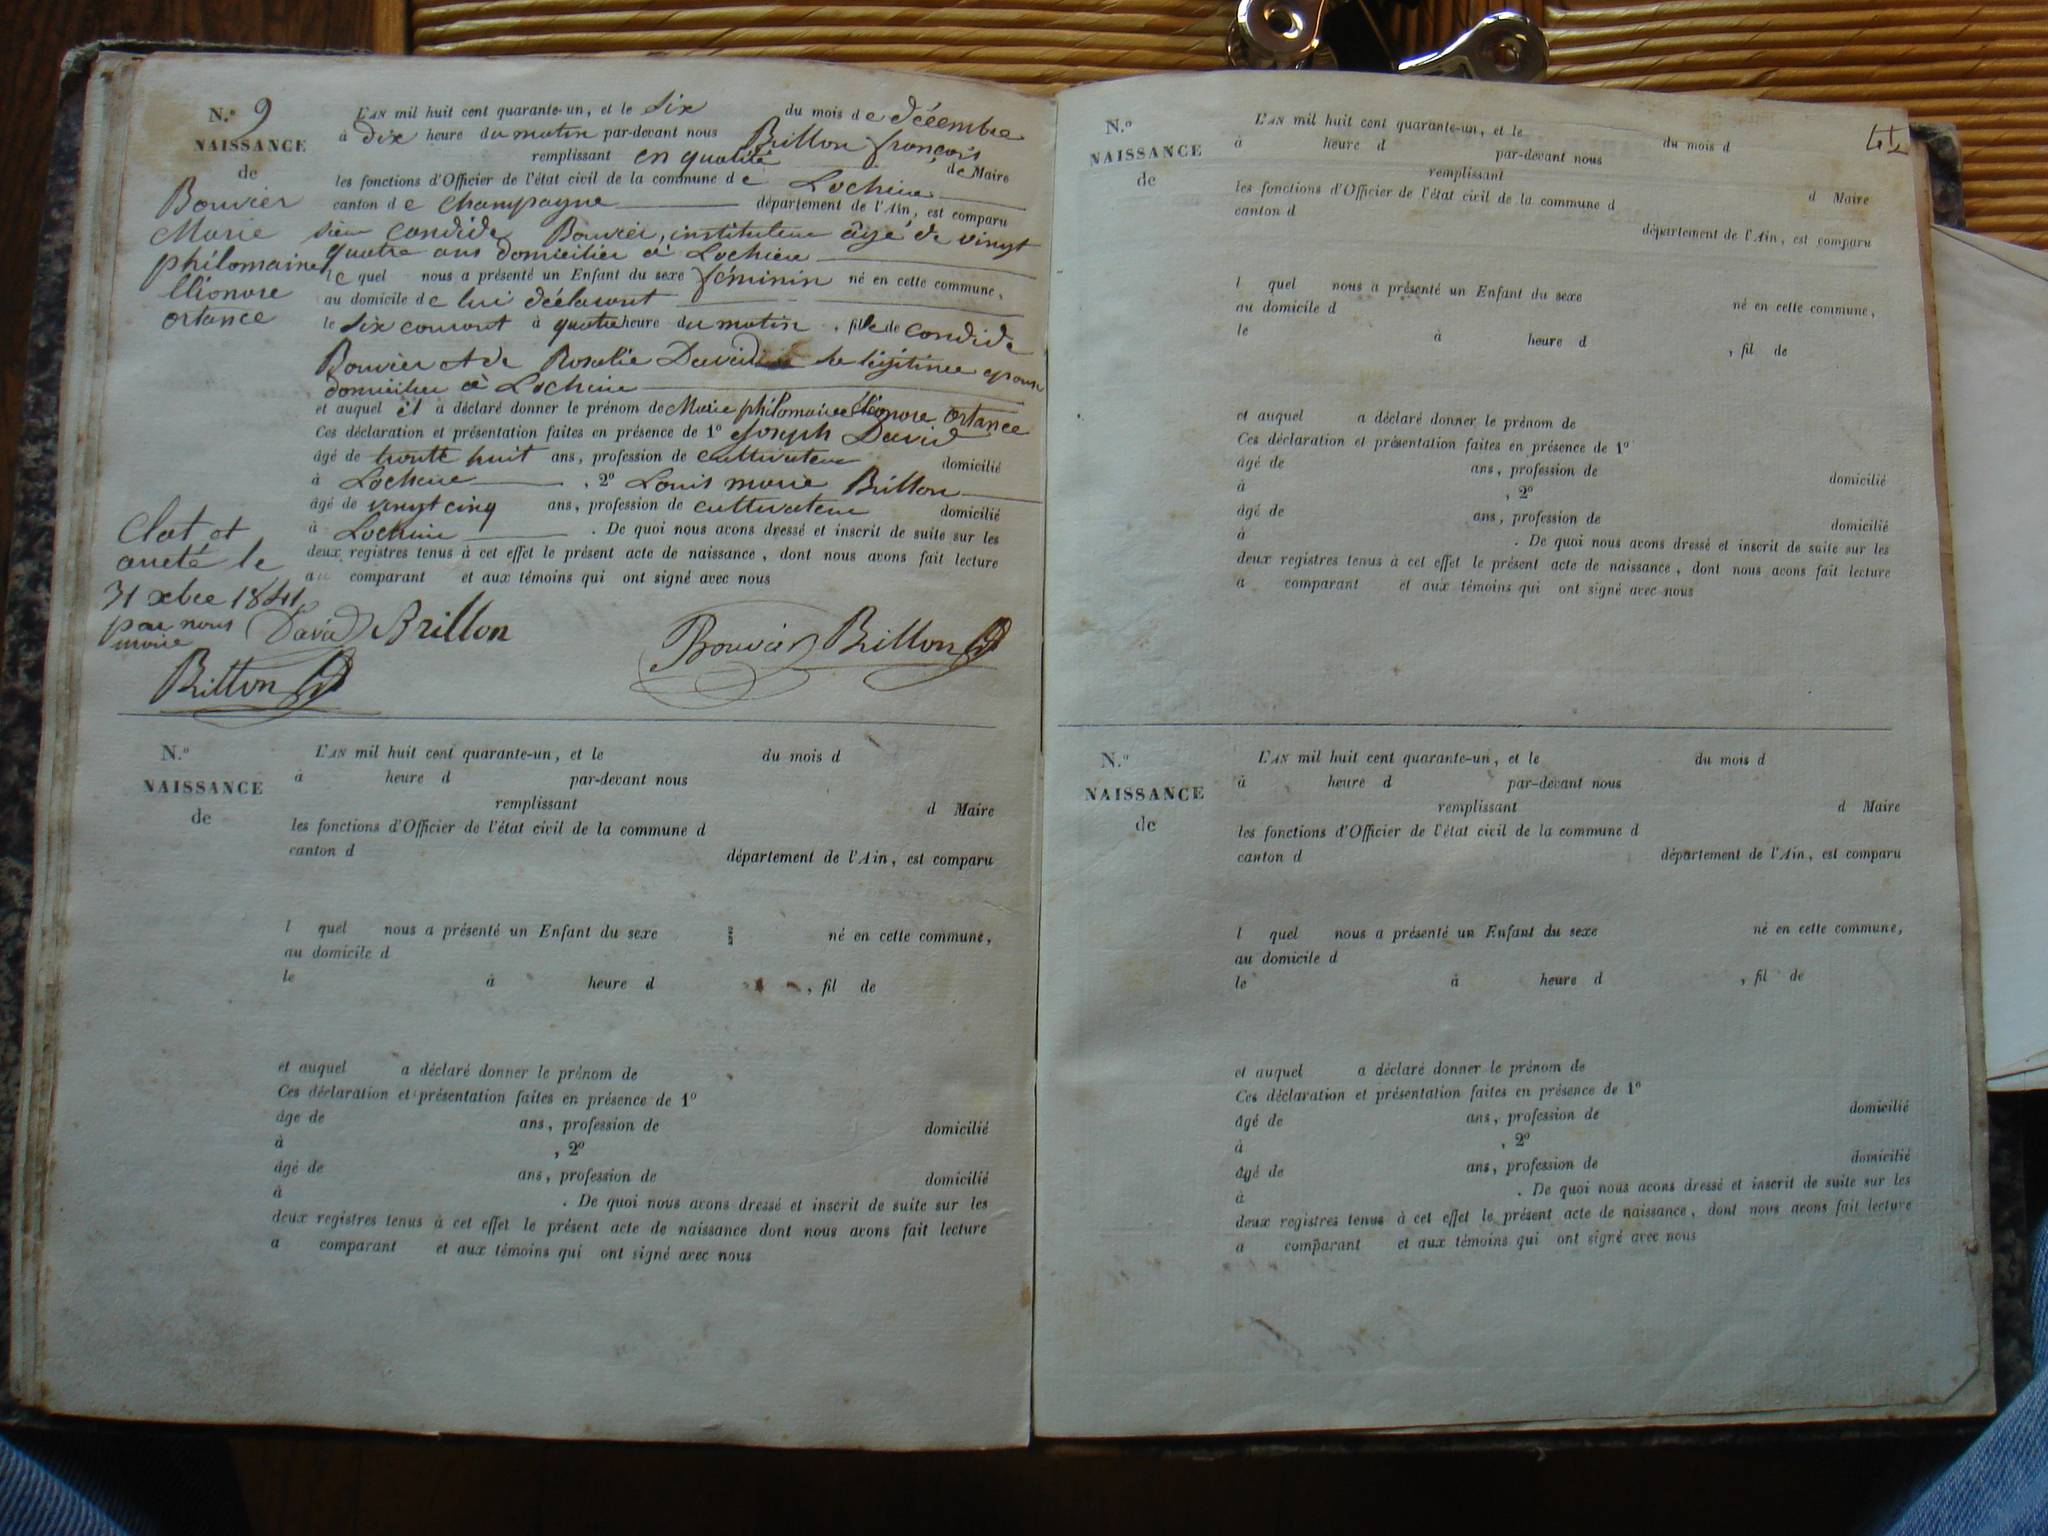 N.º 9
NAISSANCE
de
Bouvier
Marie
philomaine
Elionore
ortance
L'AN mil huit cent quarante-un, et le six du mois de décembre
à dix heure du matin par-devant nous Brillon françois
remplissant en qualité de Maire
les fonctions d'Officier de l'état civil de la commune de Lochieu
canton de Champagne département de l'Ain, est comparu
sieur Candide Bouvier, instituteur âgé de vingt
quatre ans domicilier à Lochieu
le quel nous a présenté un Enfant du sexe féminin né en cette commune,
au domicile de lui déclarant
le six courant à quatre heure du matin, fille de Candide
Bouvier et de Rosalie David sa légitime epouse
domicilier à Lochieu
et auquel il a déclaré donner le prénom de Marie philomaine Eléonore Ortance
Ces déclaration et présentation faites en présence de 1º Joseph David
âgé de trente huit ans, profession de cultivateur domicilié
à Lochieu, 2º Louis marie Brillon
âgé de vingt cinq ans, profession de cultivateur domicilié
à Lochieu. De quoi nous avons dressé et inscrit de suite sur les
deux registres tenus à cet effet le présent acte de naissance, dont nous avons fait lecture
au comparant et aux témoins qui ont signé avec nous
David Brillon Bouvier Brillon
Clot et
arreté le
31 xbre 1841
par nous
maire
Brillon
N.º
NAISSANCE
de
L'AN mil huit cent quarante-un, et le du mois d
à heure d par-devant nous
remplissant d Maire
les fonctions d'Officier de l'état civil de la commune d
canton d département de l'Ain, est comparu
l quel nous a présenté un Enfant du sexe né en cette commune,
au domicile d
le à heure d , fil de
et auquel a déclaré donner le prénom de
Ces déclaration et présentation faites en présence de 1º
âge de ans, profession de domicilié
à , 2º
âgé de ans, profession de domicilié
à . De quoi nous avons dressé et inscrit de suite sur les
deux registres tenus à cet effet le présent acte de naissance dont nous avons fait lecture
a comparant et aux témoins qui ont signé avec nous
41
N.º
NAISSANCE
de
L'AN mil huit cent quarante-un, et le du mois d
à heure d par-devant nous
remplissant d Maire
les fonctions d'Officier de l'état civil de la commune d
canton d département de l'Ain, est comparu
l quel nous a présenté un Enfant du sexe né en cette commune,
au domicile d
le à heure d , fil de
et auquel a déclaré donner le prénom de
Ces déclaration et présentation faites en présence de 1º
âgé de ans, profession de domicilié
à , 2º
âgé de ans, profession de domicilié
à . De quoi nous avons dressé et inscrit de suite sur les
deux registres tenus à cet effet le présent acte de naissance, dont nous avons fait lecture
a comparant et aux témoins qui ont signé avec nous
N.º
NAISSANCE
de
L'AN mil huit cent quarante-un, et le du mois d
à heure d par-devant nous
remplissant d Maire
les fonctions d'Officier de l'état civil de la commune d
canton d département de l'Ain, est comparu
l quel nous a présenté un Enfant du sexe né en cette commune,
au domicile d
le à heure d , fil de
et auquel a déclaré donner le prénom de
Ces déclaration et présentation faites en présence de 1º
âgé de ans, profession de domicilié
à , 2º
âgé de ans, profession de domicilié
à . De quoi nous avons dressé et inscrit de suite sur les
deux registres tenus à cet effet le présent acte de naissance, dont nous avons fait lecture
a comparant et aux témoins qui ont signé avec nous